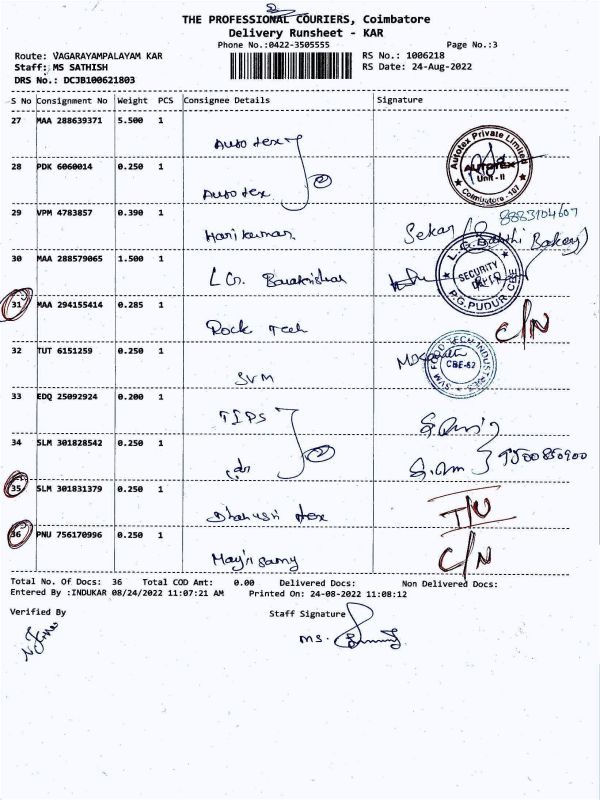 THE PROFESSIONAL COURIERS, Coimbatore
Delivery Runsheet - KAR
Phone No.:0422-3505555
Page No.:3
Route: VAGARAYAMPALAYAM KAR
RS No.: 1006218
Staff: MS SATHISH
RS Date: 24-Aug-2022
DRS No.: DCJB100621803
S No Consignment No Weight PCS Consignee Details Signature
27 MAA 288639371 5.500 1
Auto tex
Autotex Private Limited
AUTOTEX
Unit-II
Coimbatore-107
28 PDK 6060014 0.250 1
Auto tex
29 VPM 4783857 0.390 1
Hari kumar
Sekar
8883104607
Bakery)
30 MAA 288579065 1.500 1
L G Balakrishnan
SECURITY
DEPT
P.G.PUDUR, CBE
31 MAA 294155414 0.285 1
Rock Tech
C/N
32 TUT 6151259 0.250 1
SVM
SVM FOOD TECH INDUSTRIES
CBE-62
33 EDQ 25092924 0.200 1
TIPS
34 SLM 301828542 0.250 1
do
35 SLM 301831379 0.250 1
Dhanush tex
I/U
36 PNU 756170996 0.250 1
C/N
Total No. Of Docs: 36 Total COD Amt: 0.00 Delivered Docs: Non Delivered Docs:
Entered By :INDUKAR 08/24/2022 11:07:21 AM Printed On: 24-08-2022 11:08:12
Verified By Staff Signature
MS.